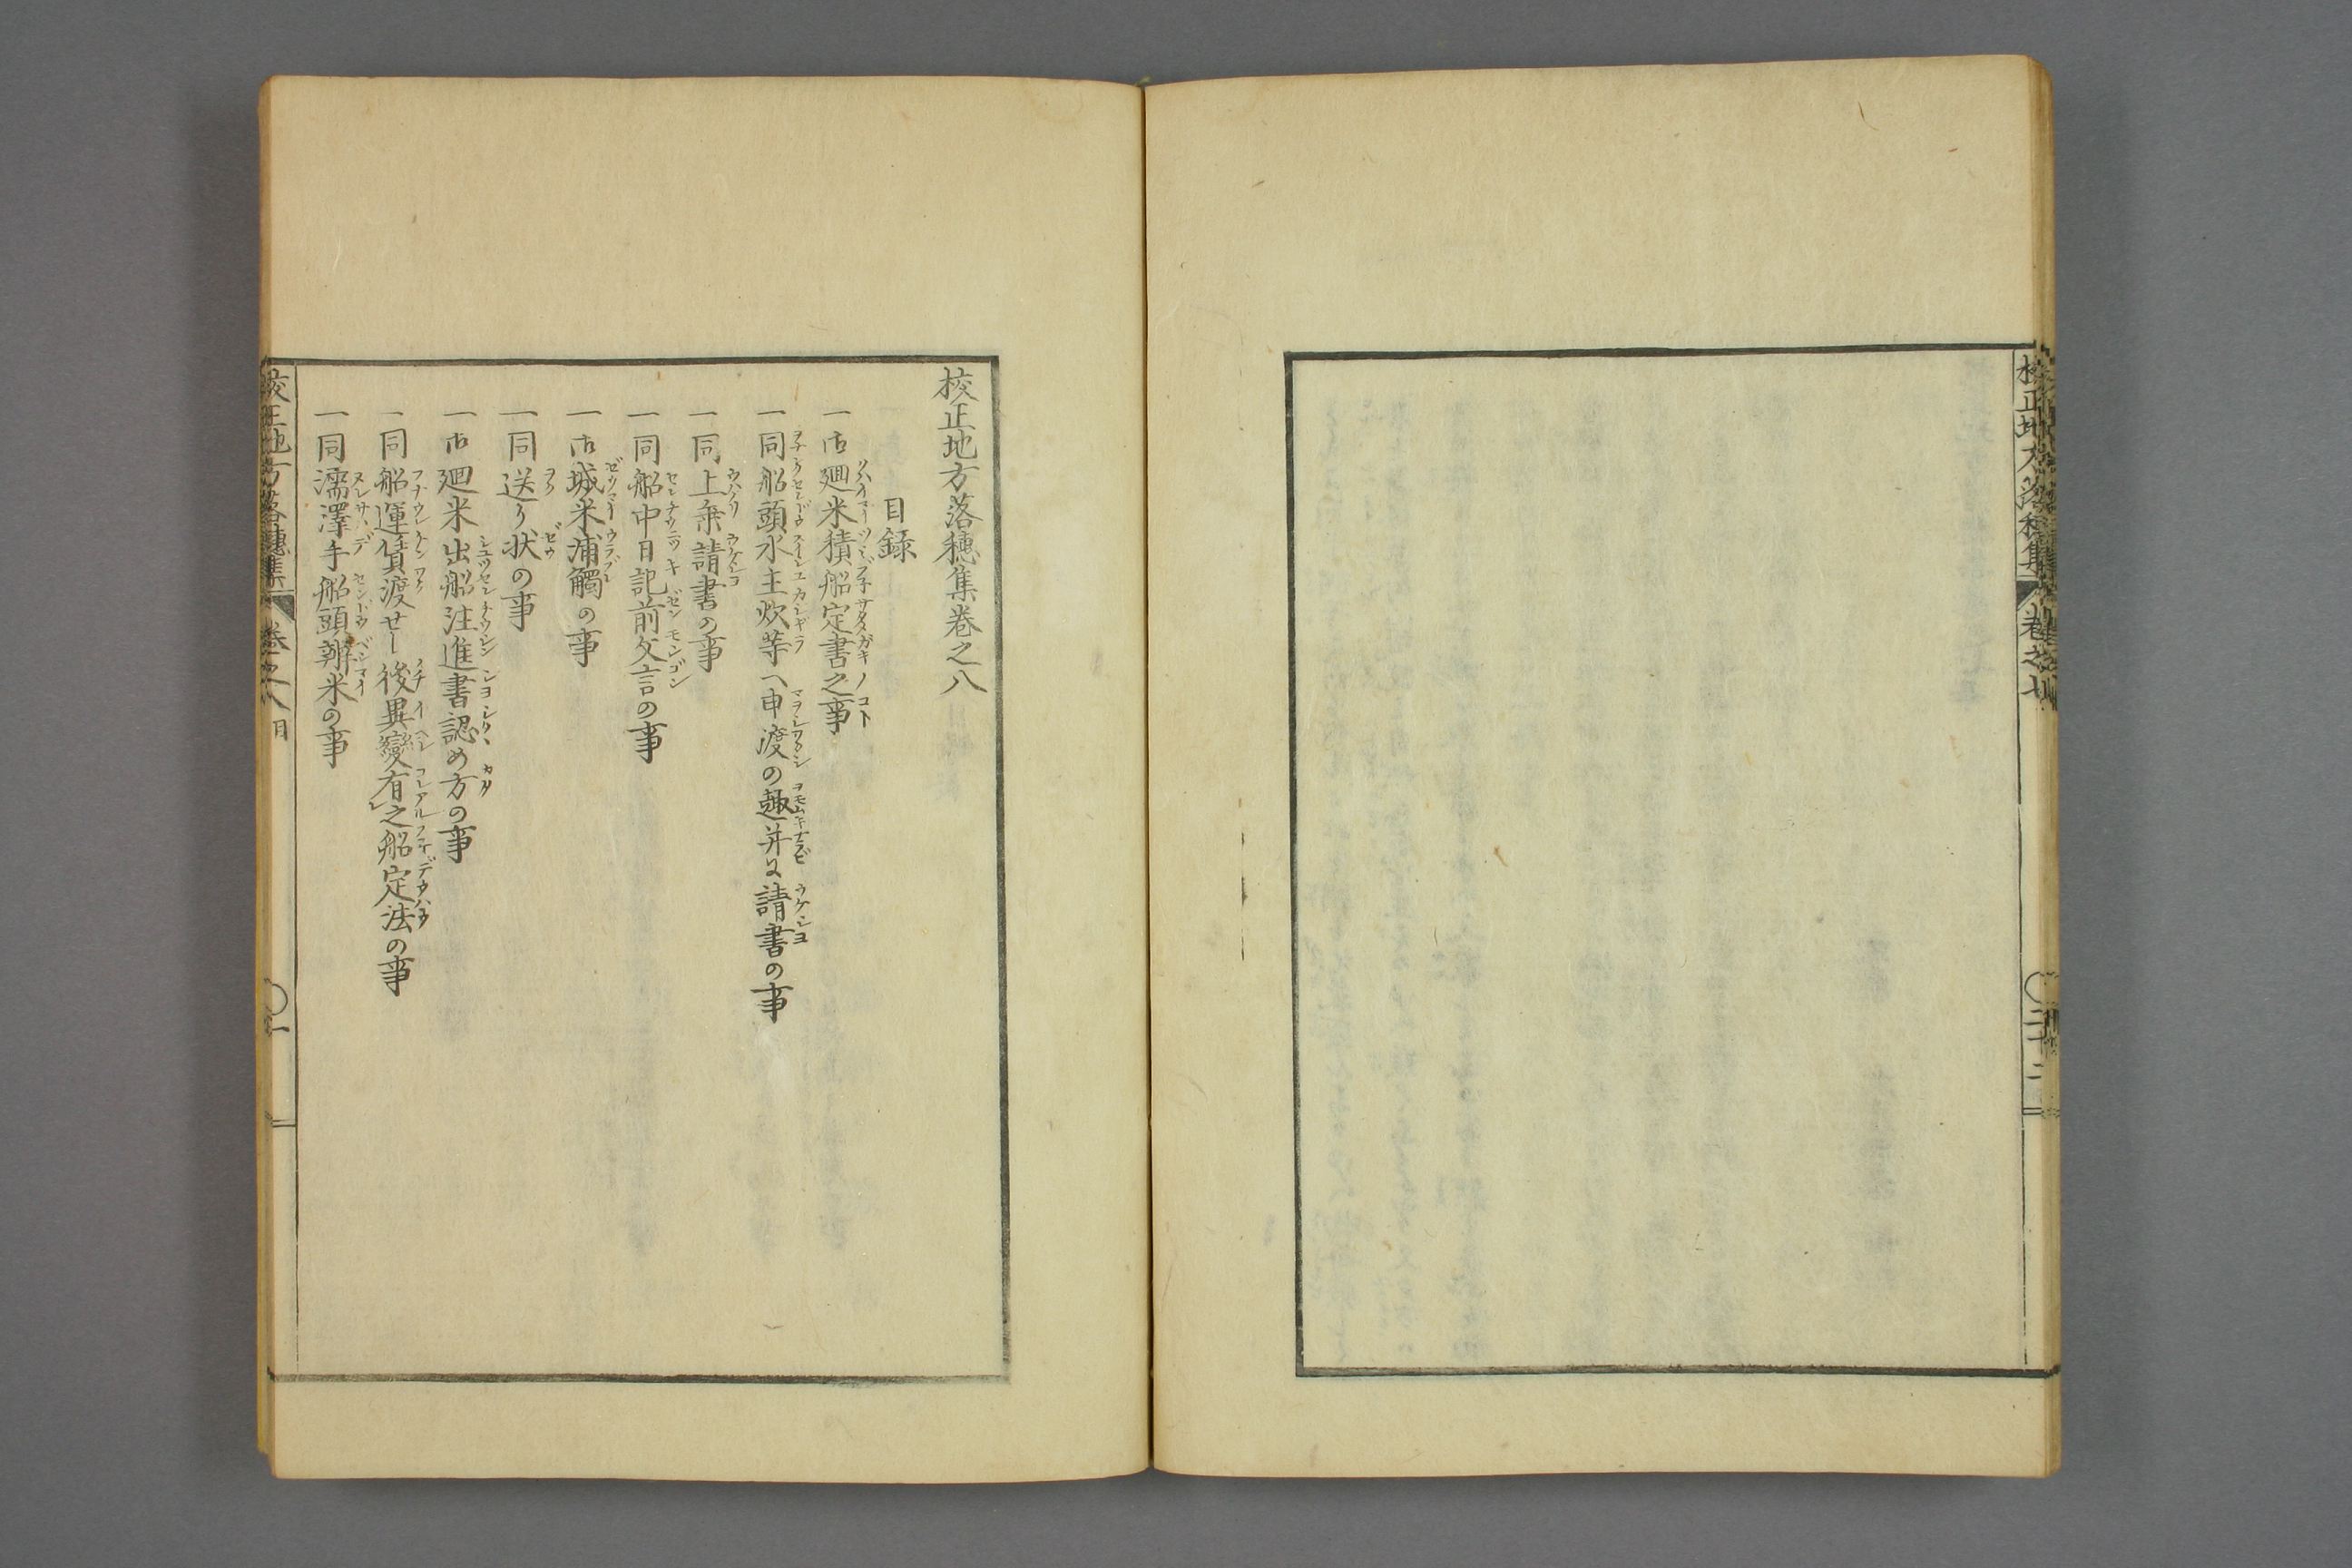 校正地方落穂集 卷之七
校正地方落穂集卷之八
目録
一御廻米積船定書之事
一同船頭水主炊等へ申渡の趣并に請書の事
一同上乗請書の事
一同船中日記前文言の事
一御城米浦觸の事
一同送り状の事
一御廻米出船注進書認め方の事
一同船運賃渡せし後異變有レ之船定法の事
一同濡澤手船頭辨米の事
校正地方落穂集 卷之八 目 〇一